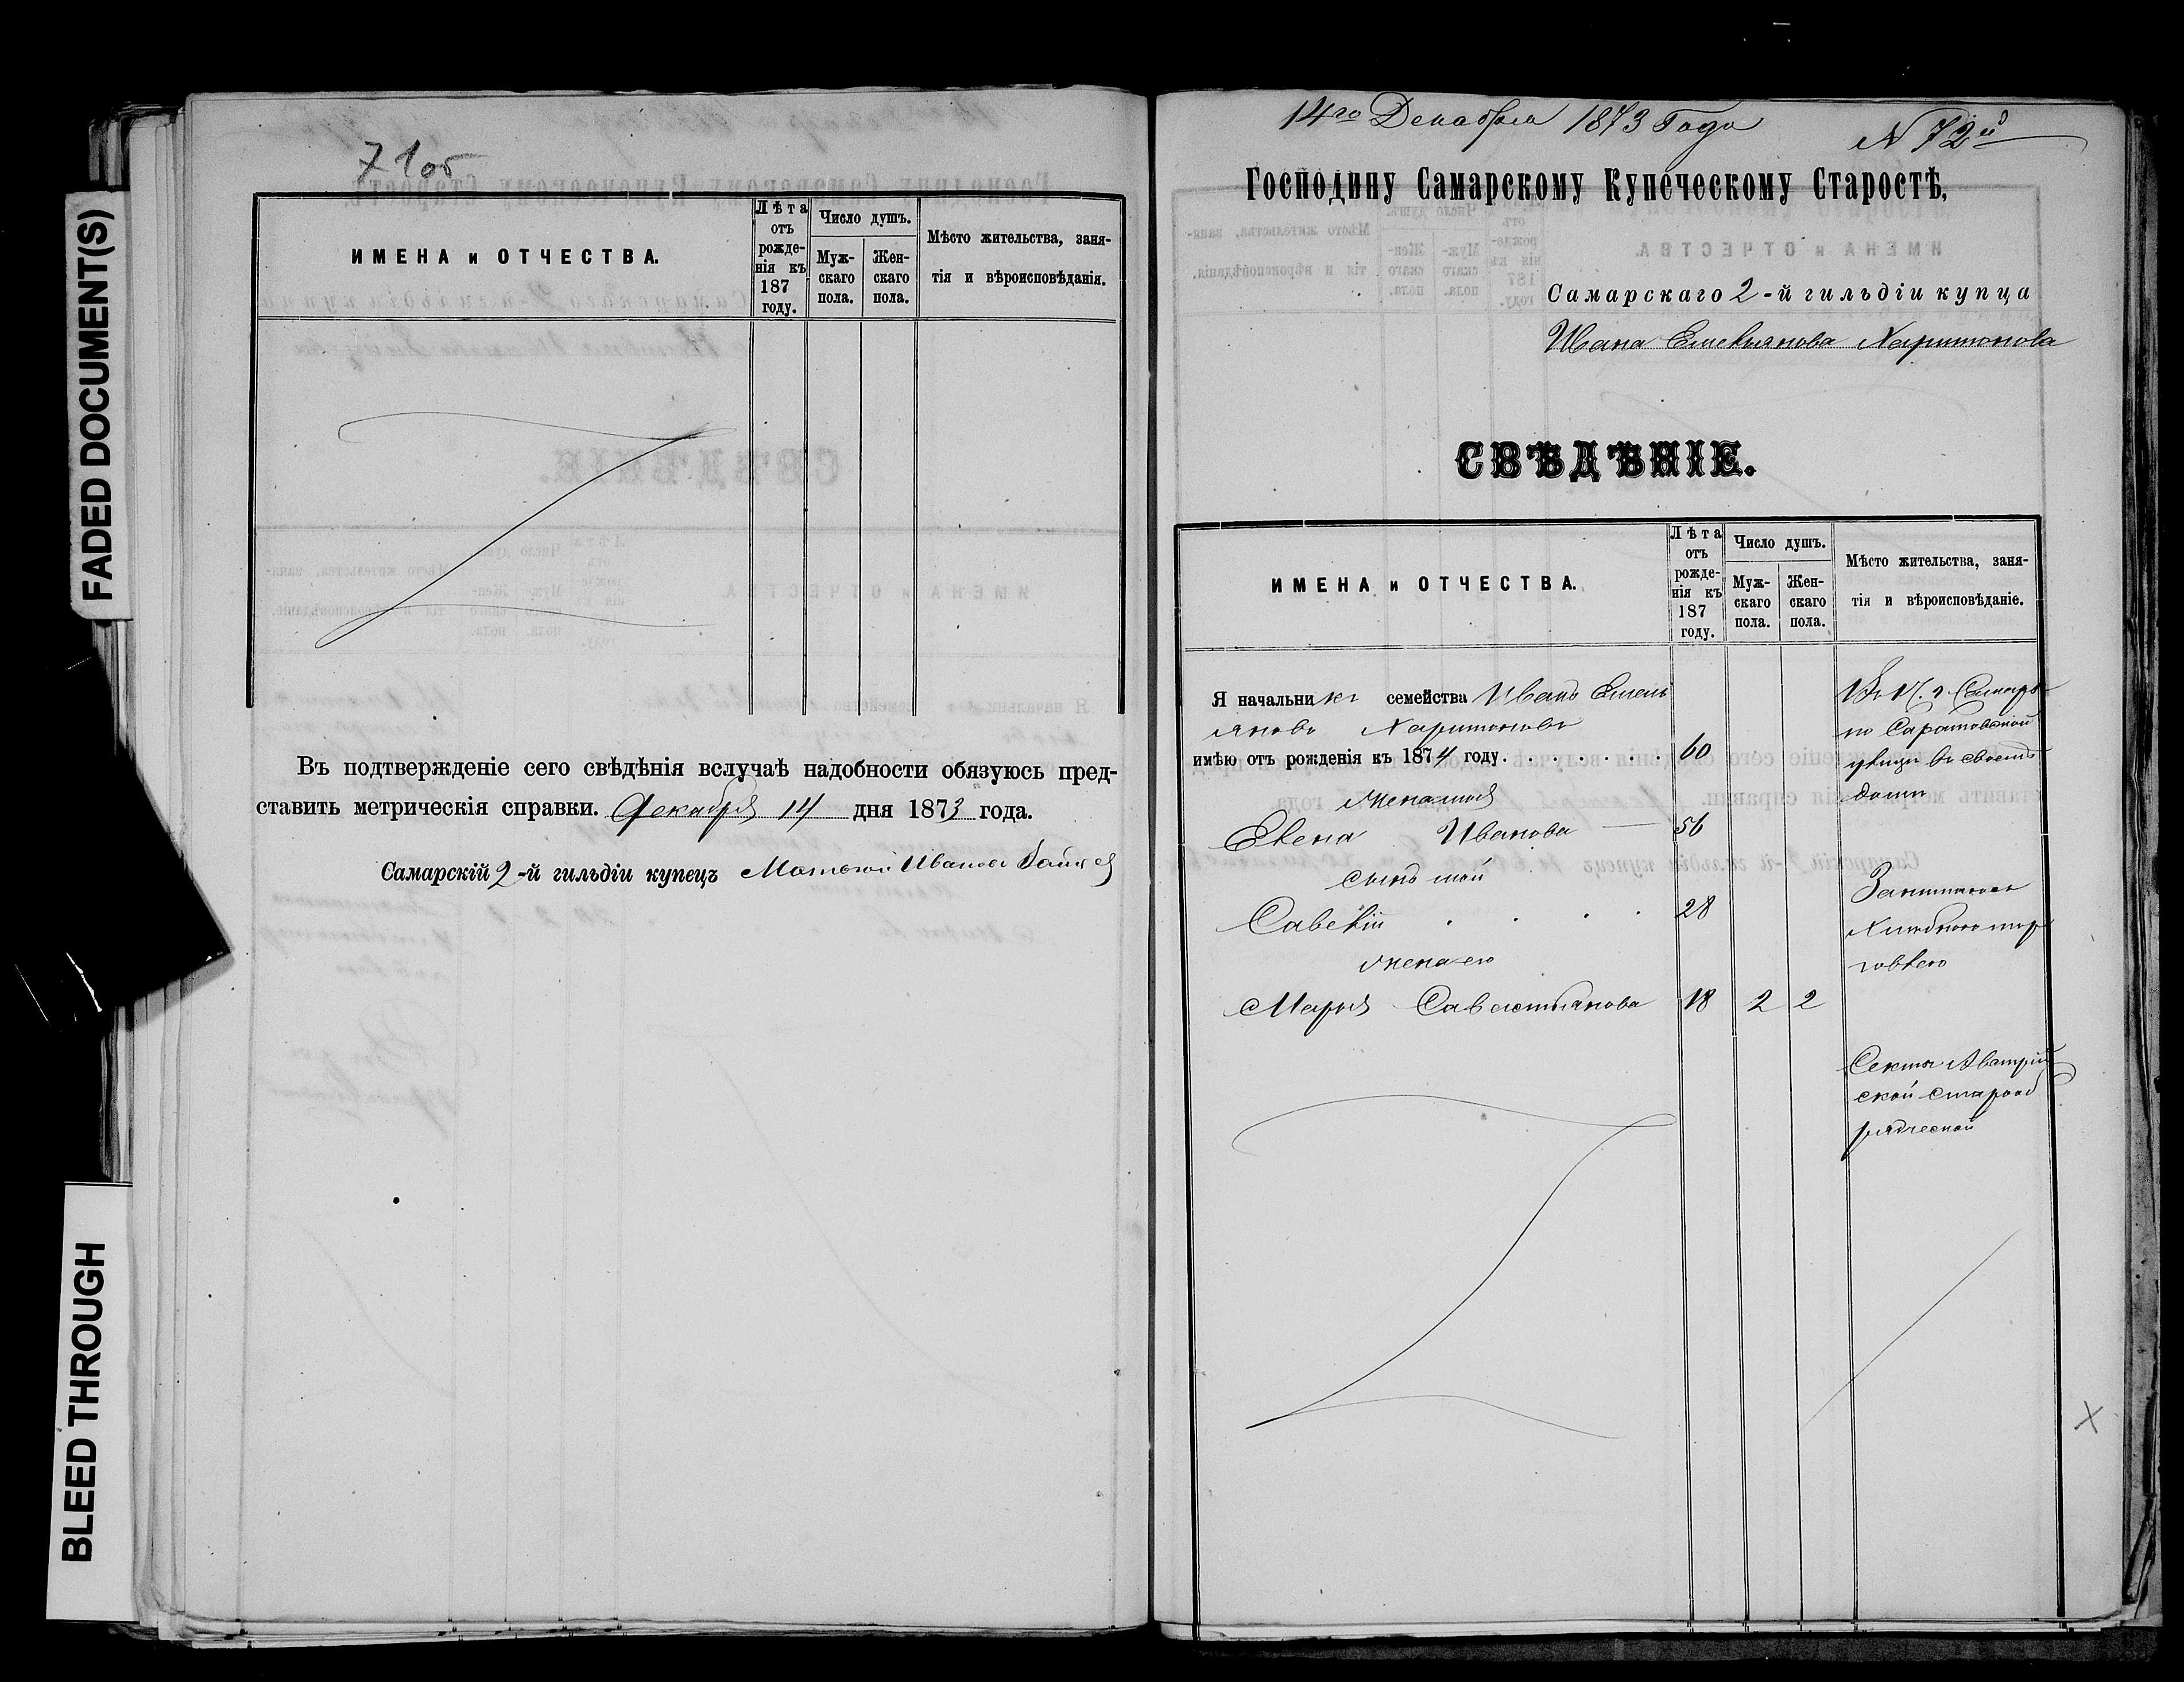 FADED DOCUMENT(S)
BLEED THROUGH
71об
ИМЕНА и ОТЧЕСТВА.
Лѣта отъ рожденія къ 187 году.
Число душъ.
Мужскаго пола.
Женскаго пола.
Мѣсто жительства, заня-
тія и вѣроисповѣданія.
Въ подтвержденіе сего свѣдѣнія вслучаѣ надобности обязуюсь пред-
ставить метрическія справки. Декабря 14 дня 1873 года.
Самарскій 2-й гильдіи купецъ Иванов
14го Декабря 1873 Года
N 72й
Господину Самарскому Купеческому Старостѣ,
Самарскаго 2-й гильдіи купца
Ивана Емельянова Харитонова
СВѢДѢНІЕ.
ИМЕНА и ОТЧЕСТВА.
Лѣта отъ рожденія къ 187 году.
Число душъ.
Мужскаго пола.
Женскаго пола.
Мѣсто жительства, заня-
тія и вѣроисповѣданіе.
Я начальникъ семейства Иванъ Емель
яновъ Харитоновъ
имѣю отъ рожденія къ 1874 году. . . . . . . . 60
жена моя
Елена Иванова — 56
сынъ мой
Савелій . . . . 28
жена его
Марья Савастьянова 18 2 2
г. Самарѣ
по Саратовской
улицѣ въ своемъ
домѣ
Занимаюсь
Хлѣбною тор
говлею
Секты Австрій
ской старооб
рядческой
X